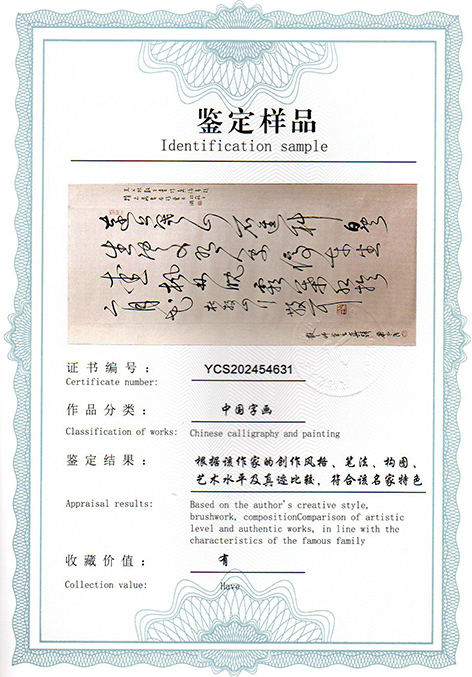 鉴定样品
Identification sample
遠上寒山石徑斜白雲
生處有人家停車坐
愛楓林晚霜葉紅於
二月花 杜牧山行
证书编号： YCS202454631
Certificate number:
作品分类： 中国字画
Classification of works: Chinese calligraphy and painting
鉴定结果： 根据该作家的创作风格、笔法、构图、
艺术水平及真迹比较，符合该名家特色
Appraisal results: Based on the author's creative style,
brushwork, compositionComparison of artistic
level and authentic works, in line with the
characteristics of the famous family
收藏价值： 有
Collection value: Have